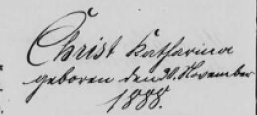 Christ Katharina
geboren den 20. November
1888.